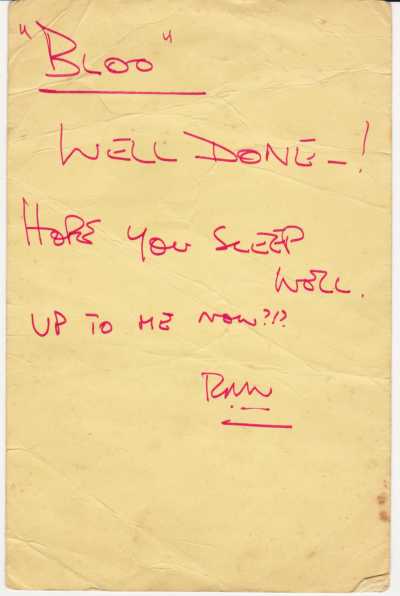 "BLOO"
WELL DONE—!
HOPE YOU SLEEP
WELL.
UP TO ME NOW?!?